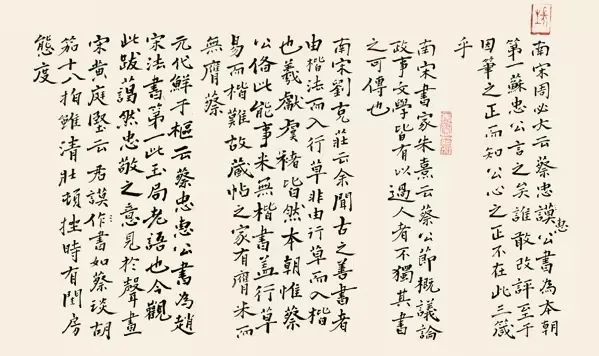 南宋周必大云蔡忠謨公書為本朝
惠
第一蘇忠公言之矣誰敢改評至于
因筆之正而知公心之正不在此三箴
乎
南宋書家朱熹云蔡公節概議論
政事文學皆有以過人者不獨其書
之可傳也
南宋劉克莊云余聞古之善書者
由楷法而入行草非由行草而入楷
也羲獻虞褚皆然本朝惟蔡
公备此能事米無楷書蓋行草
易而楷難故藏帖之家有膺米而
無膺蔡
元代鮮于樞云蔡忠惠公書為趙
宋法書第一此玉局老語也今觀
此跋藹然忠敬之意見於聲畫
宋黄庭堅云君謨作書如蔡琰胡
笳十八拍雖清壯頓挫時有閨房
態度